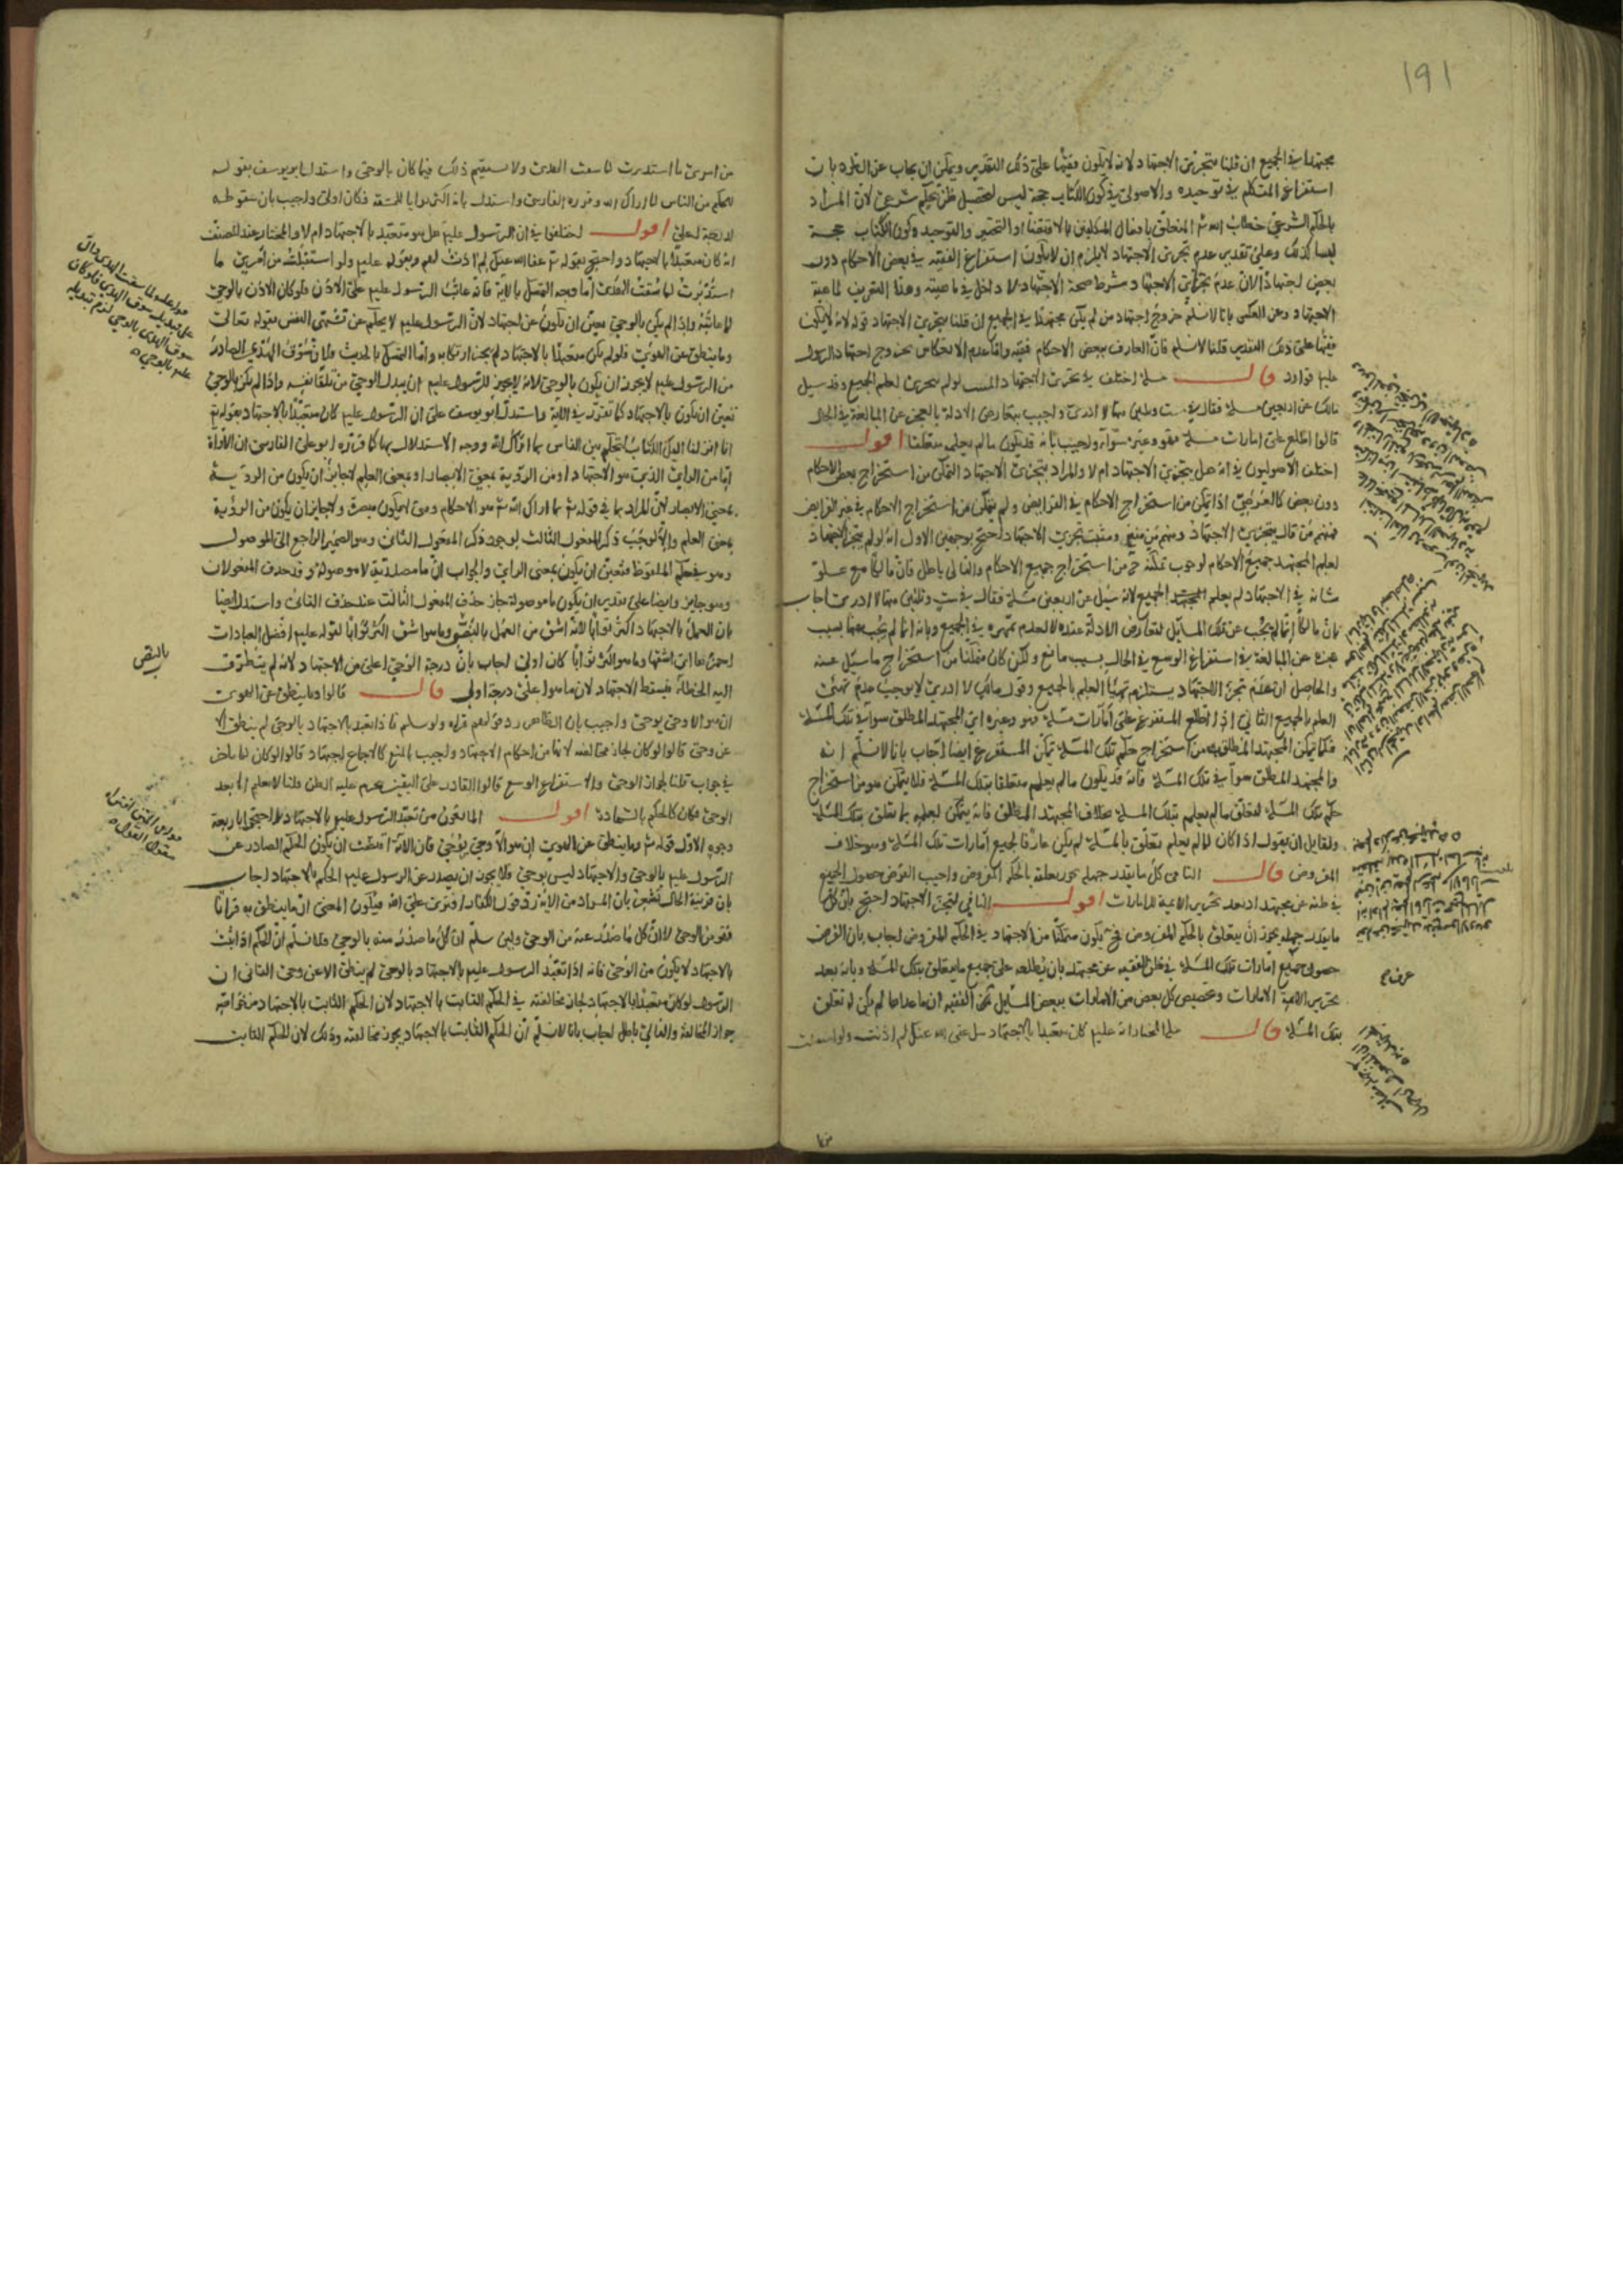 ١٩١
مجتهدا في الجميع ان قلنا بتجزئ الاجتهاد لانه لا يكون فقيها على ذلك التقدير ويمكن ان يجاب عن الطرد بان
استفراغ المتكلم في توحيده والاصولى في كون الكتاب حجة ليس لتحصيل ظن بحكم شرعي لان المراد
بالحكم الشرعي خطاب الله تع المتعلق بافعال المكلفين بالاقتضاء او التخيير والتوحيد وكون الكتاب حجة
ليسا كذلك وعلى تقدير عدم تجزئ الاجتهاد لا يلزم ان لا يكون استفراغ الفقيه في بعض الاحكام دون
بعض اجتهادا لان عدم تجزئ الاجتهاد شرط صحة الاجتهاد لا داخل في ماهيته وهذا التعريف لماهية
الاجتهاد وعن العكس بانا لا نسلم خروج اجتهاد من لم يكن مجتهدا في الجميع ان قلنا بتجزئ الاجتهاد قوله لانه لا يكون
فقيها على ذلك التقدير قلنا لا نسلم فان العارف ببعض الاحكام فقيه واما عدم الانعكاس بخروج اجتهاد الرسول
عليم فوارد قال مسلة اختلف في تجزئ الاجتهاد المثبت لو لم يتجزئ لعلم الجميع وقد سيل
مالك عن اربعين مسلة فقال في ست وثلثين منها لا ادرى واجيب بتعارض الادلة بالعجز عن المبالغة في الحال
قالوا اطلع على امارات مسلة فهو وغيره سواء واجيب بانه قد يكون ما لم يعلمه متعلقا اقول
اختلف الاصوليون في انه هل يتجزئ الاجتهاد ام لا والمراد بتجزئ الاجتهاد التمكن من استخراج بعض الاحكام
دون بعض كالفرضي اذا تمكن من استخراج الاحكام في الفرايض ولم يتمكن من استخراج الاحكام في غير الفرايض
فمنهم من قال بتجزئ الاجتهاد ومنهم من منعه ومثبت تجزئ الاجتهاد احتج بوجهين الاول انه لو لم يتجز الاجتهاد
لعلم المجتهد جميع الاحكام لوجوب تمكنه ح من استخراج جميع الاحكام والتالى باطل فان مالكا مع علو
شانه في الاجتهاد لم يعلم الجميع لانه سئل عن اربعين مسلة فقال في ست وثلثين منها لا ادرى اجاب
بان مالكا انما لم يجب عن تلك المسايل لتعارض الادلة عنده لا لعدم تمهره في الجميع وبانه انما لم يجب عنها بسبب
عجزه عن المبالغة في استفراغ الوسع في الحال بسبب مانع ولكن كان متمكنا من استخراج ما سئل عنه
والحاصل ان عدم تجزئ الاجتهاد يستلزم تهيؤ العلم بالجميع وقول مالك لا ادرى لا يوجب عدم تهيئ
العلم بالجميع الثانى اذا اطلع المستفرغ على امارات مسلة فهو وغيره اى المجتهد المطلق سواء في تلك المسلة
فكما تمكن المجتهد المطلق من استخراج حكم تلك المسلة تمكن المستفرغ ايضا اجاب بانا لا نسلم انه
والمجتهد المطلق سواء في تلك المسلة فانه قد يكون ما لم يعلم متعلقا بتلك المسلة فلا يتمكن هو من استخراج
حكم تلك المسلة لتعلق ما لم يعلم بتلك المسلة بخلاف المجتهد المطلق فانه يتمكن لعلمه بما يتعلق بتلك المسلة
ولقايل ان يقول اذا كان لما لم يعلم تعلق بالمسلة لم يكن عارفا لجميع امارات تلك المسلة وهو خلاف
المفروض قال النافى كل ما يقدر جهله يجوز تعلقه بالحكم المفروض واجيب الفرض حصول الجميع
في ظنه عن مجتهد او بعد تحرير الائمة للامارات اقول النافى لتجزئ الاجتهاد احتج بان كل
ما يقدر جهله يجوز ان يتعلق بالحكم المفروض فلا يكون متمكنا من الاجتهاد في الحكم المفروض اجاب بان الفرض
حصول جميع امارات تلك المسلة في ظن الفقيه عن مجتهد بان يطلعه على جميع ما يتعلق بتلك المسلة وبانه بعد
تحرير الائمة الامارات وتخصيص كل بعض من الامارات ببعض المسايل ظن الفقيه ان ما عداها لم يكن له تعلق
بتلك المسلة قال مسلة المختار انه عليم كان متعبدا بالاجتهاد مثل عفى الله عنك لم اذنت ولو استقبلت
من امرى ما استدبرت لما سقت الهدى ولا يستقيم ذلك فيما كان بالوحى واستدل ابو يوسف بقوله
لتحكم بين الناس بما اراك الله وقرره الفارسى واستدل بانه اكثر ثوابا للمشقة فكان اولى واجيب بان سقوطه
لدرجة اعلى اقول اختلفوا في ان الرسول عليم هل هو متعبد بالاجتهاد ام لا والمختار عند المصنف
انه كان متعبدا بالاجتهاد واحتج بقوله تع عفا الله عنك لم اذنت لهم وبقوله عليم ولو استقبلت من امرى ما
استدبرت لما سقت الهدى اما وجه التمسك بالاية فانه عاتب الرسول عليم على الاذن فلو كان الاذن بالوحى
لما عاتبه واذا لم يكن بالوحى تعين ان يكون عن اجتهاد لان الرسول عليم لا يحكم عن تشهى النفس بقوله تعالى
وما ينطق عن الهوى فلو لم يكن متعبدا بالاجتهاد لم يجز ارتكابه واما التمسك بالحديث فلان سوق الهدى الصادر
من الرسول عليم لا يجوز ان يكون بالوحى لانه لا يجوز للرسول عليم ان يبدل الوحى من تلقاء نفسه واذا لم يكن بالوحى
تعين ان يكون بالاجتهاد كما تقرر في الاية واستدل ابو يوسف على ان الرسول عليم كان متعبدا بالاجتهاد بقوله تع
انا انزلنا اليك الكتاب لتحكم بين الناس بما اراك الله ووجه الاستدلال بها كما قرره ابو على الفارسى ان الاراة
اما من الراى الذى هو الاجتهاد او من الروية بمعنى الابصار او بمعنى العلم لا جايز ان يكون من الروية
بمعنى الابصار لان المراد بما في قوله تع بما اراك الله تع هو الاحكام وهى لا يكون مبصرة ولا جايز ان يكون من الرؤية
بمعنى العلم والا لوجب ذكر المفعول الثالث لوجود ذكر المفعول الثانى وهو الضمير الراجع الى الموصول
وهو في حكم الملفوظ فتعين ان يكون بمعنى الراى والجواب ان ما مصدرية لا موصولة وقد حذف المفعولان
وهو جايز وايضا على تقدير ان يكون ما موصولة جاز حذف المفعول الثالث عند حذف الثانى واستدل ايضا
بان العمل بالاجتهاد اكثر ثوابا لانه اشق من العمل بالنص وما هو اشق اكثر ثوابا لقوله عليم افضل العبادات
احمزها اى اشقها وما هو اكثر ثوابا كان اولى اجاب بان درجة الوحى اعلى من الاجتهاد لانه لم يتطرق
اليه الخطاء فيسقط الاجتهاد لان ما هو اعلى درجة اولى قال قالوا وما ينطق عن الهوى
ان هو الا وحى يوحى واجيب بان الظاهر رد قولهم افتراه ولو سلم فاذا تعبد بالاجتهاد بالوحى لم ينطق الا
عن وحى قالوا لو كان لجاز مخالفته لانها من احكام الاجتهاد واجيب بالمنع كالاجماع عن اجتهاد قالوا لو كان لما تاخر
في جواب قلنا لجواز الوحى ولاستفراغ الوسع قالوا القادر على اليقين يحرم عليه الظن قلنا لا يعلم الا بعد
الوحى فكان كالحكم بالشهادة اقول المانعون من تعبد الرسول عليم بالاجتهاد احتجوا باربعة
وجوه الاول قوله تع وما ينطق عن الهوى ان هو الا وحى يوحى فان الاية اقتضت ان يكون الحكم الصادر عن
الرسول عليم بالوحى والاجتهاد ليس بوحى فلا يجوز ان يصدر عن الرسول عليم الحكم بالاجتهاد اجاب
بان قرينة الحال تشعر بان المراد من الاية رد قول الكفار افترى على الله فيكون المعنى ان ما ينطق به قرانا
فهو من الوحى لا ان كل ما صدر عنه من الوحى ولئن سلم ان كل ما صدر عنه بالوحى فلا نسلم ان الحكم اذا ثبت
بالاجتهاد لا يكون من الوحى فانه اذا تعبد الرسول عليم بالاجتهاد بالوحى لم ينطق الا عن وحى الثانى ان
الرسول لو كان متعبدا بالاجتهاد لجاز مخالفته في الحكم الثابت بالاجتهاد لان الحكم الثابت بالاجتهاد من خواصه
جواز المخالفة والتالى باطل اجاب بانا لا نسلم ان الحكم الثابت بالاجتهاد يجوز مخالفته وذلك لان الحكم الثابت
بالنص